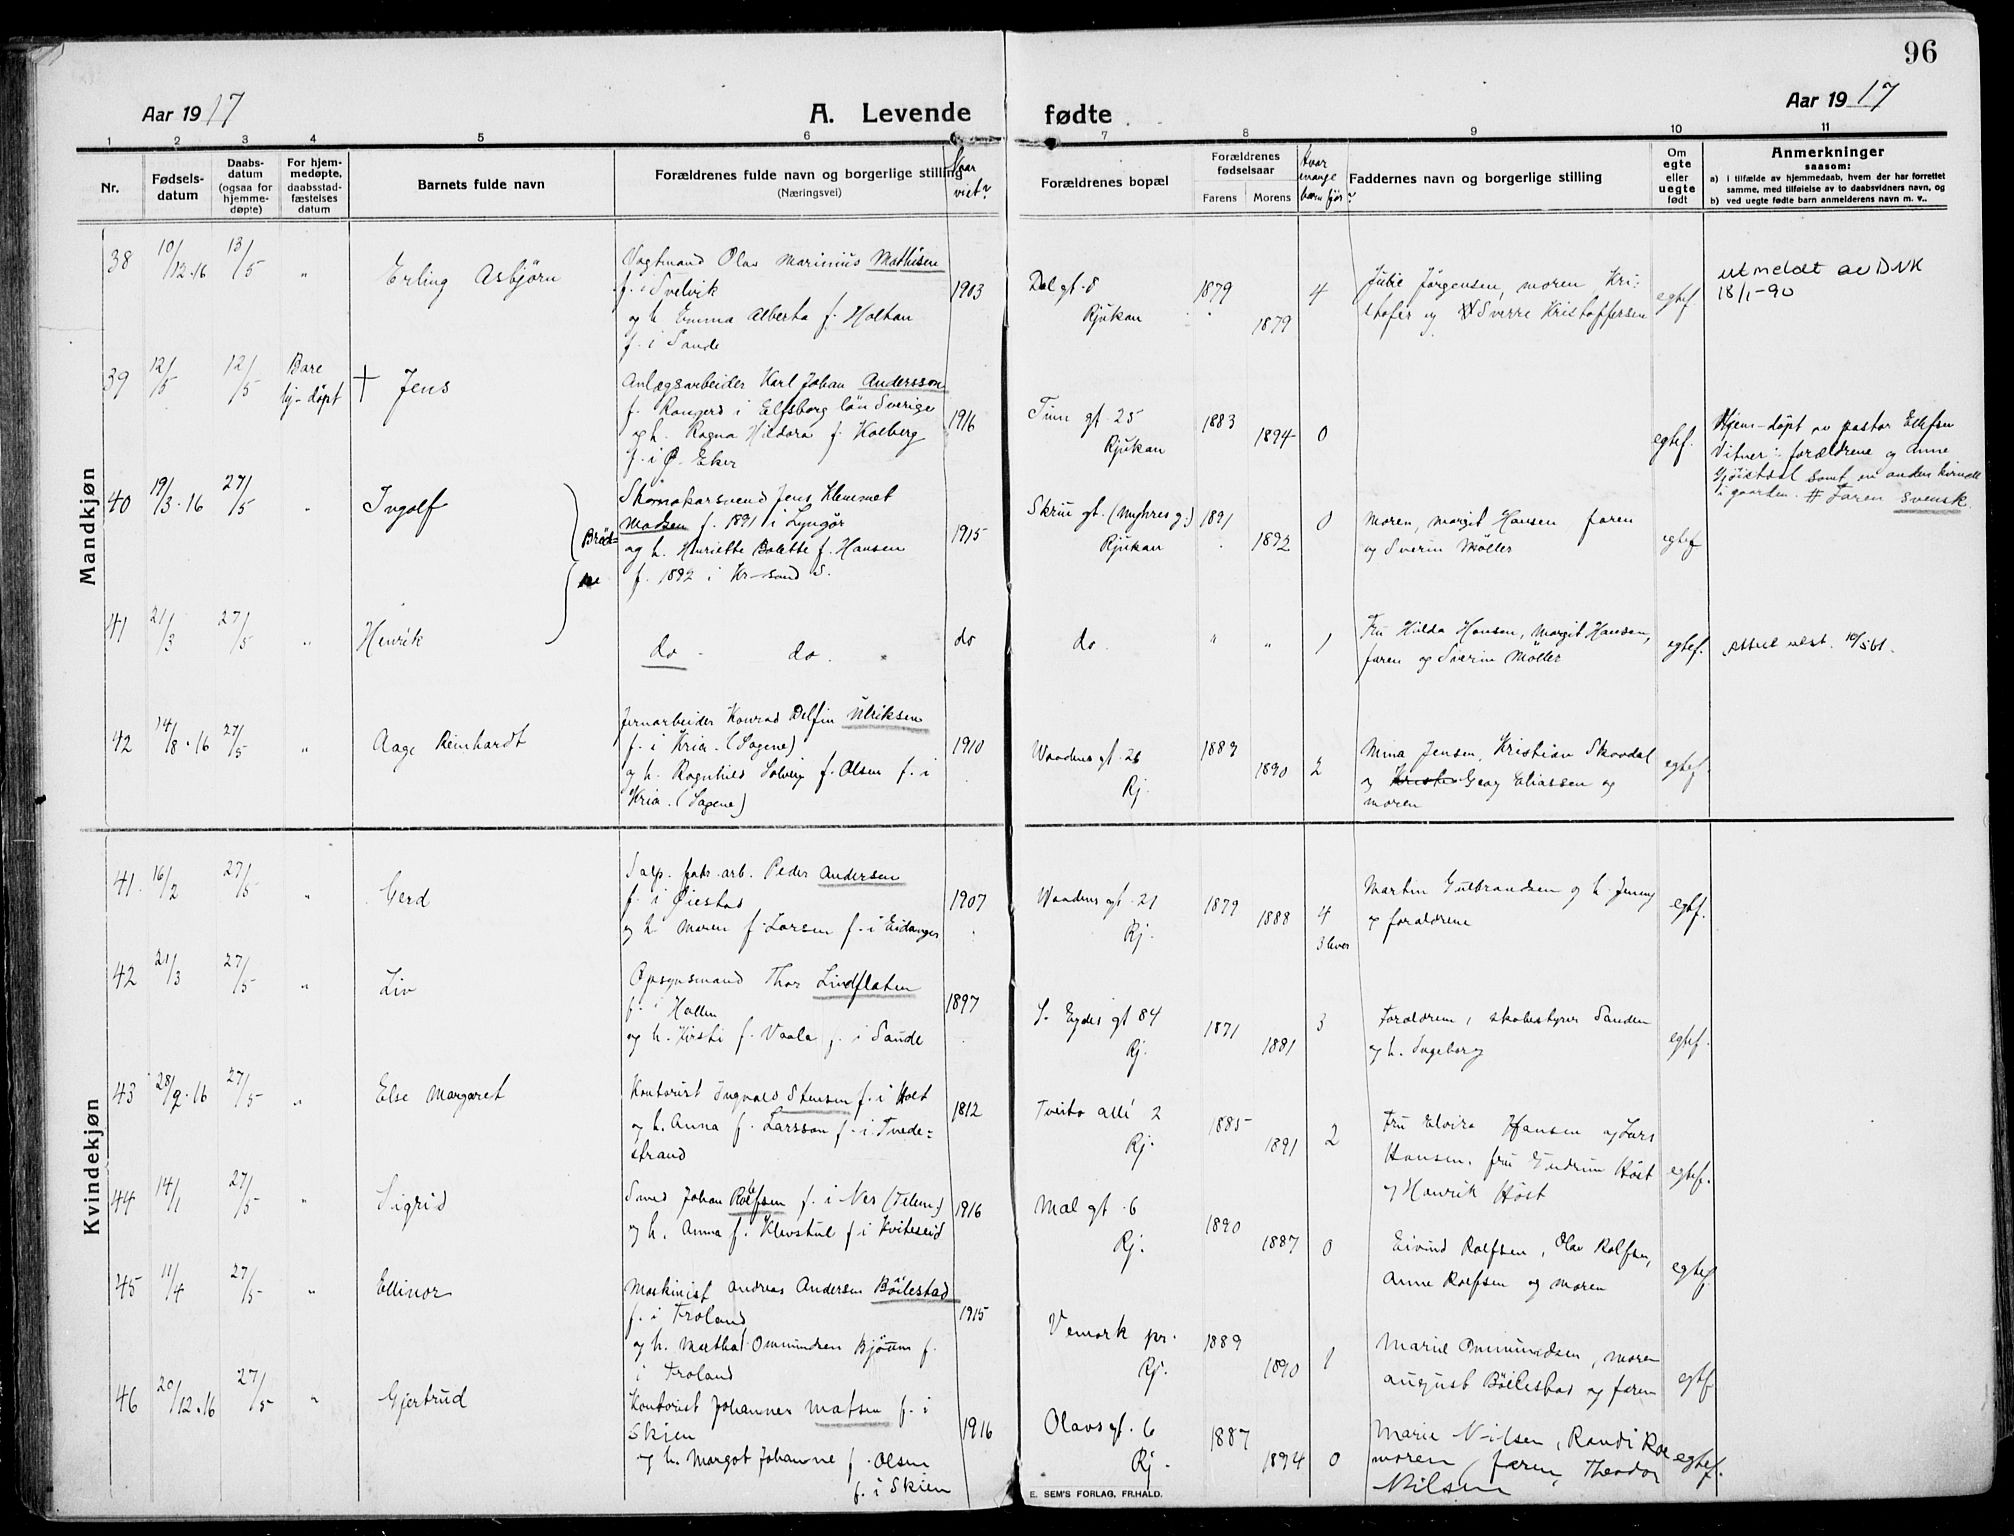 96
Aar 1917
A. Levende
fødte
Aar 1917
1 2 3 4 5 6 7 8 9 10 11
Nr.
Fødsels-
datum
Daabs-
datum
(ogsaa for
hjemme-
døpte)
For hjem-
medøpte,
daabsstad-
fæstelses
datum
Barnets fulde navn
Forældrenes fulde navn og borgerlige stilling
(Næringsvei)
Naar
viet?
Forældrenes bopæl
Forældrenes
fødselsaar
Farens Morens
Hvor
mange
børn før?
Faddernes navn og borgerlige stilling
Om
egte
eller
uegte
født
Anmerkninger
saasom:
a) i tilfælde av hjemmedaab, hvem der har forrettet
samme, med tilføielse av to daabsvidners navn, og
b) ved uegte fødte barn anmelderens navn m. v..
Mandkjøn
38 10/12-16 13/5 " Erling Asbjørn
Vagtmand Olav Marinius Mathisen
f. i Svelvik
og h. Emma Alberta f. Holtan
f. i Sande
1903
Dal gt. 8
Rjukan
1879
1879
4
Julie Jørgensen, moren, Kri-
stofer og Sverre Kristoffersen
egtef
utmeldt av DNK
18/1-90
39 12/5 12/5 Bare
hj-døpt
† Jens
Anlægsarbeider Karl Johan Andersson
f. i Elfsborg län Sverige
og h. Ragna Hildora f. Kolberg
f. i Ø. Eker
1916
Tinn gt. 25
Rjukan
1883
1894
0
egtef.
Hjem-døpt av pastor Ellefsen
Vitner: forældrene og Anne
samt en anden kvinde
i gaarden. # Faren svensk.
40 19/3-16 27/5 " Ingolf
Brød-
re
Skomakarsvend Jens Klemmet
Madsen f. 1891 i Lyngør
og h. Henriette Bolette f. Hansen
f. 1892 i Kr-sand S.
1915
Skriu gt. (Myhres g.)
Rjukan
1891
1892
0
Moren, Margit Hansen faren
og Sverin Møller
egtef
41 21/3 27/5 " Henrik
do - do.
do
do.
" "
1
Fru Hilda Hansen, Margit Hansen,
faren og Sverin Møller
egtef.
attest utst. 10/5 61.
42 14/8-16 27/5 " Aage Reinhardt
Jernarbeider Konrad Delfin Ulriksen
f. i Kria. (Sagene)
og h. Ragnhild Solveig f. Olsen f. i
Kria. (Sagene)
1910
Waadens gt. 26
Rj.
1889
1890
2
Mina Jensen, Kristian Skovdal
og Georg Eliassen og
moren
egtef.
Kvindekjøn
41. 16/2 27/5 " Gerd
Salp. fabr. arb. Peder Andersen
f. i Øiestad
og h. Maren f. Larsen f. i Eidanger
1907
Waadens gt. 21
Rj.
1879
1888
4
3 lever
Martin Gulbrandsen og h. Jenny
og forældrene
egtef.
42 21/3 27/5 " Liv
Opsynsmand Thor Lindflaten
f. i Hollen
og h. Kirsti f. Vaala f. i Saude
1897
S. Eydes gt 84
Rj.
1871
1881
3
Forældrene, skolestyrer Sanden
og h. Ingeborg
egtef.
43 28/9-16 27/5 " Else Margaret
Kontorist Ingvald Stensen f. i Holt
og h. Anna f. Larsson f. i Tvede-
strand
1812
Tveito allé 2
Rj.
1885
1891
2
Fru Elvira Hansen og Lars
Hansen, fru Gudrun Høst
og Henrik Høst
egtef.
44 14/1 27/5 " Sigrid
Smed Johan Rolfsen f. i Nes (Telem.)
og h. Anna f. Klevstul f. i Kviteseid
1916
Mæl gt. 6
Rj.
1890
1887
0
Eivind Rolfsen, Olav Rolfsen,
Anne Rolfsen og moren
egtef.
45 11/4 27/5 " Ellinor
Maskinist Andreas Andersen Bøilestad
f. i Froland
og h. Martha Ommundsen Bjørum f.
i Froland
1915
Vemork pr.
Rj.
1889
1890
1
Marie Ommundsen, moren
August Bøilestad og faren
egtf
46 20/12-16 27/5 " Gjertrud
Kontorist Johannes Matsen f. i
Skien
og h. Margot Johanne f. Olsen
f. i Skien
1916
Olavs gt. 6
Rj.
1887
1894
0
Marie Nilsen, Randi Roe
moren, faren, Theodor
Nilsen
egtef.
E. SEM'S FORLAG, FR.HALD.